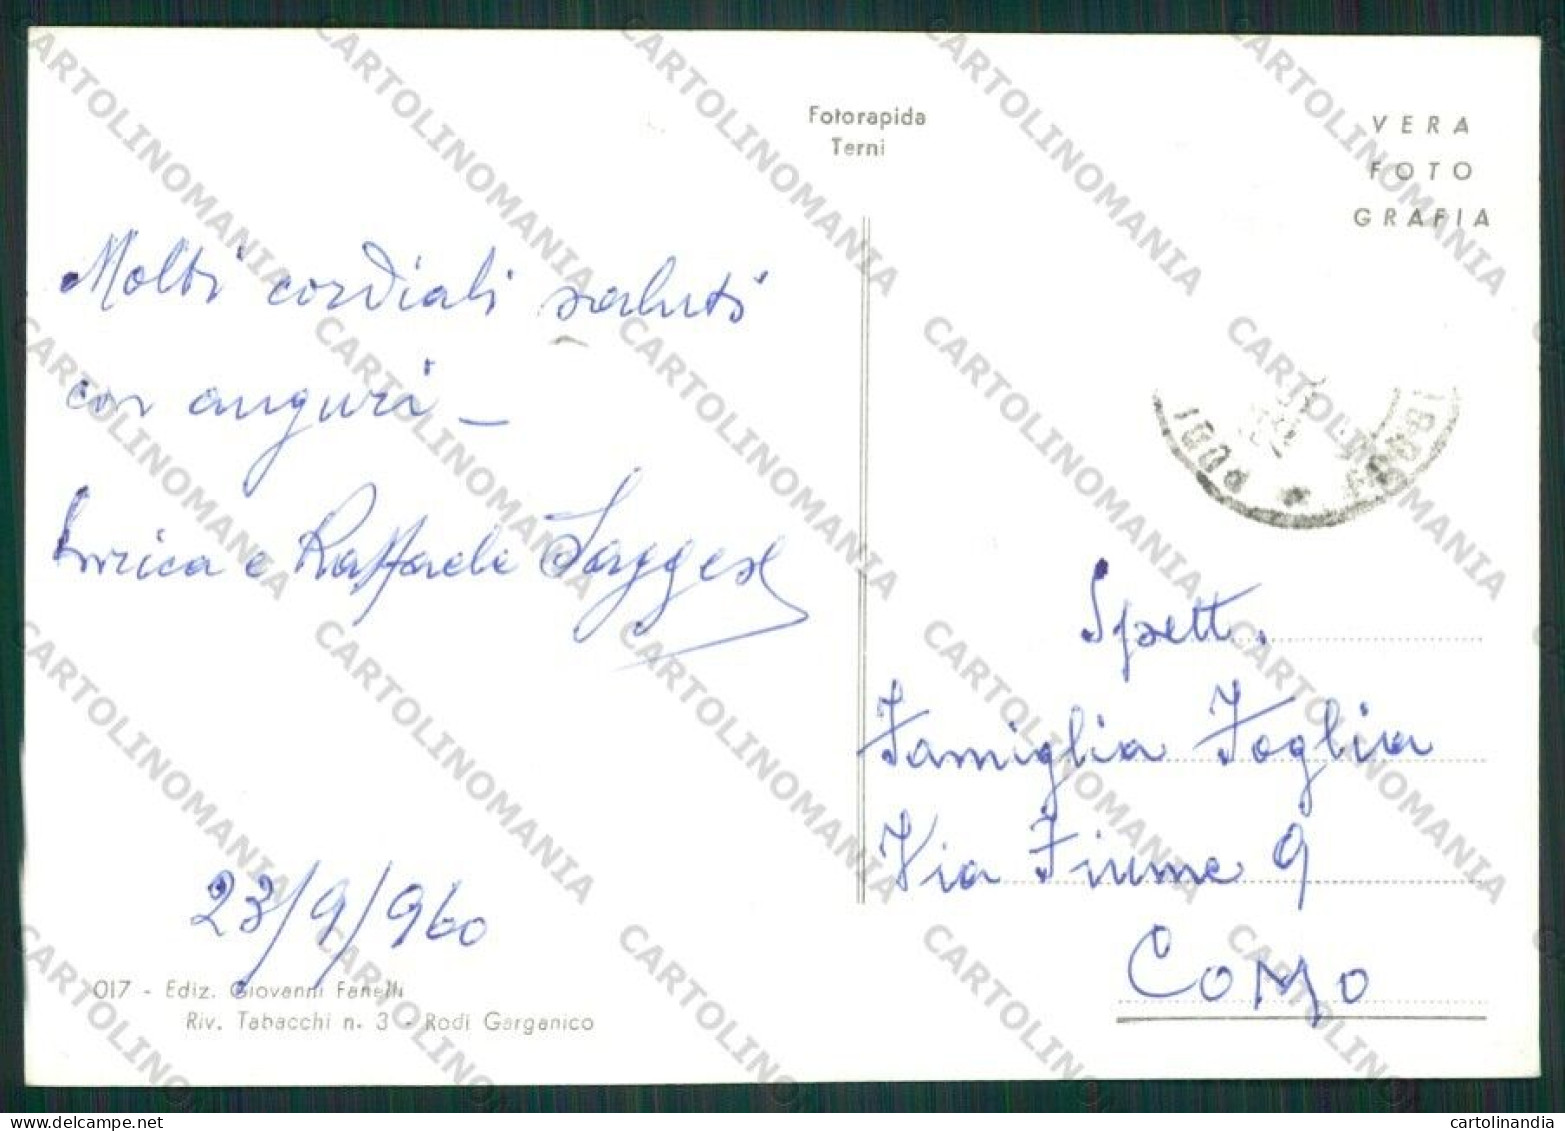 Fotorapida
Terni
VERA
FOTO
GRAFIA
Molti cordiali saluti
con auguri –
Enrica e Raffaele Saggese
23/9/960
017 - Ediz. Giovanni Fanelli
Riv. Tabacchi n. 3 - Rodi Garganico
Spett.
Famiglia Foglia
Via Fiume 9
COMO
CARTOLINOMANIA
cartolinandia